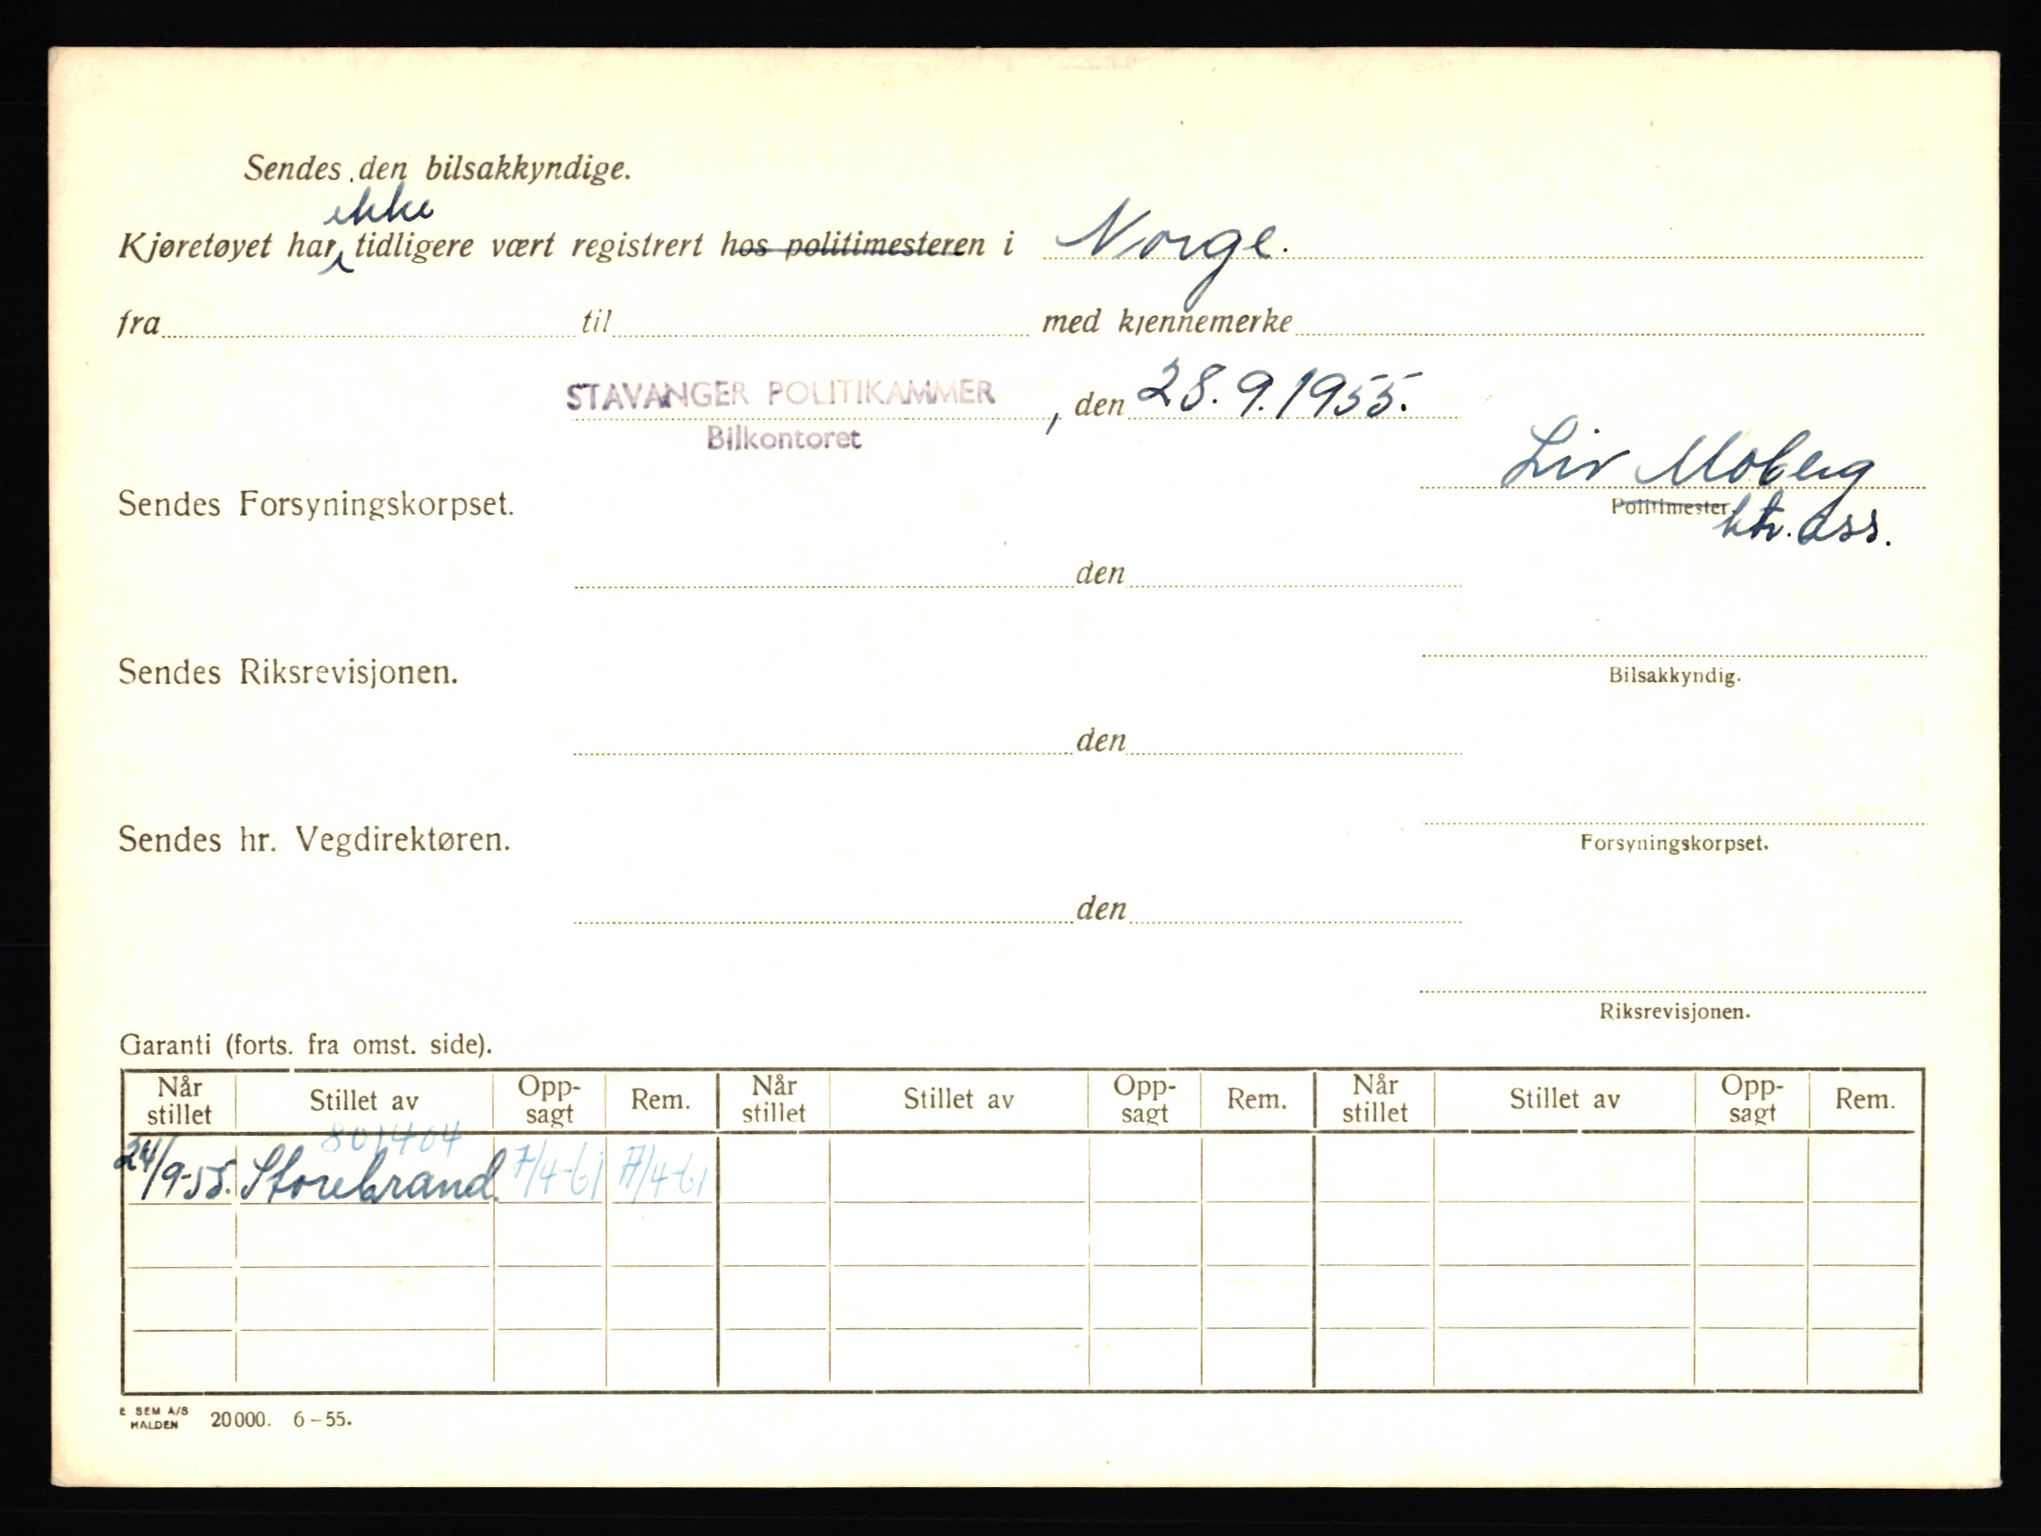 Sendes den bilsakkyndige.
ikke
Kjøretøyet har tidligere vært registrert hos politimesteren i Norge.
fra til med kjennemerke
STAVANGER POLITIKAMMER, den 28.9.1955.
Bilkontoret
Liv Moberg
Sendes Forsyningskorpset. Politimester.
ktr. ass.
den
Sendes Riksrevisjonen. Bilsakkyndig.
den
Sendes hr. Vegdirektøren. Forsyningskorpset.
den
Riksrevisjonen.
Garanti (forts. fra omst. side).
Når stillet Stillet av Opp-sagt Rem. Når stillet Stillet av Opp-sagt Rem. Når stillet Stillet av Opp-sagt Rem.
801404
24/9-55. Storebrand. 7/4-61 7/4-61
E SEM A/S
HALDEN 20000. 6-55.